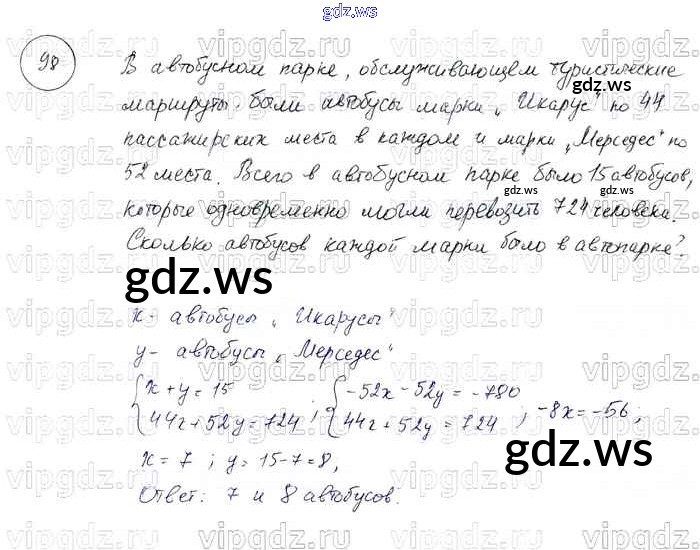 gdz.ws
98
В автобусном парке, обслуживающем туристические
маршруты, были автобусы марки „Икарус" по 44
пассажирских места в каждом и марки „Мерседес" по
52 места. Всего в автобусном парке было 15 автобусов,
gdz.ws gdz.ws
которые одновременно могли перевозить 724 человека.
Сколько автобусов каждой марки было в автопарке?
gdz.ws
x - автобусы „Икарусы"
y - автобусы „Мерседес"
{x + y = 15 {-52x - 52y = -780
{44x + 52y = 724 ; {44x + 52y = 724 ; -8x = -56 ;
x = 7 ; y = 15-7=8,
Ответ: 7 и 8 автобусов.
gdz.ws
vipgdz.ru